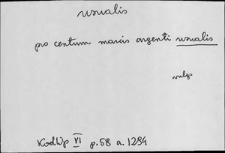 usualis
pro centum marcis argenti usualis
vulg.
KodWp VI p. 58 a. 1284